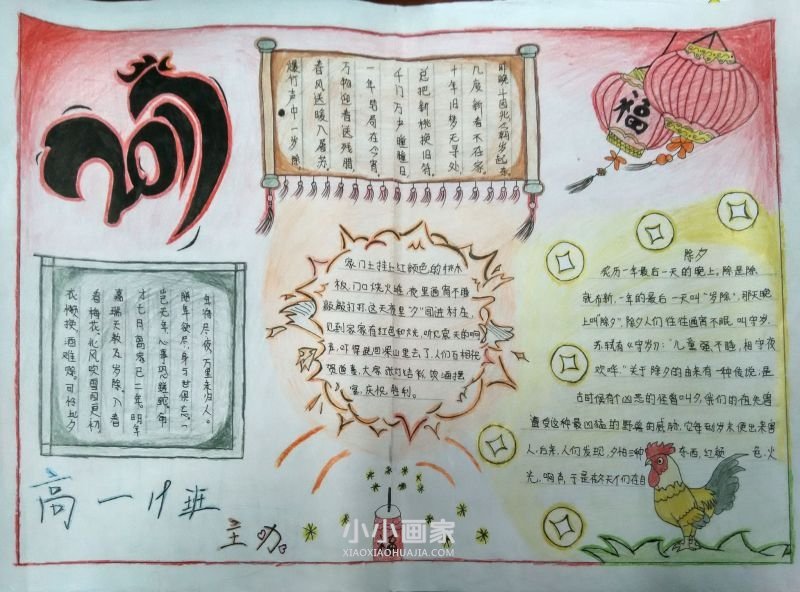 2017
昨晚斗回北
几度新春不在家
十年旧梦无寻处
总把新桃换旧符
千门万户曈曈日
一年结局在今宵
万物迎春送残腊
春风送暖入屠苏
爆竹声中一岁除
福
家门上挂上红颜色的桃木
板,门口烧火堆,夜里通宵不睡
敲敲打打这天夜里“夕”闯进村庄,
见到家家有红色和火光,听见震天的响
声,吓得跑回深山里去了,人们互相祝
贺道喜,大家张灯结彩饮酒摆
宴,庆祝胜利。
年将尽夜,万里未归人。
随年欲尽,身与世俱忘。
岂无年,心事恐蹉跎,努
才七日,离家已二年。明年
嘉瑞天教及岁除。入春
看梅花,北风吹雪四更初
除夕
农历一年最后一天的晚上,除是除
就布新,一年的最后一天叫“岁除”,那天晚
上叫“除夕”,除夕人们往往通宵不眠,叫守岁,
苏轼有《守岁》:“儿童强不睡,相守夜
欢哗。”关于除夕的由来有一种传说,是
古时候有个凶恶的怪兽叫夕,我们的祖先曾
遭受这种最凶猛的野兽的威胁,它每到岁末便出来害
人,后来,人们发现,夕怕三种东西,红颜色,火
光,响声,于是
高一19班
主办
小小画家
XIAOXIAOHUAJIA.COM